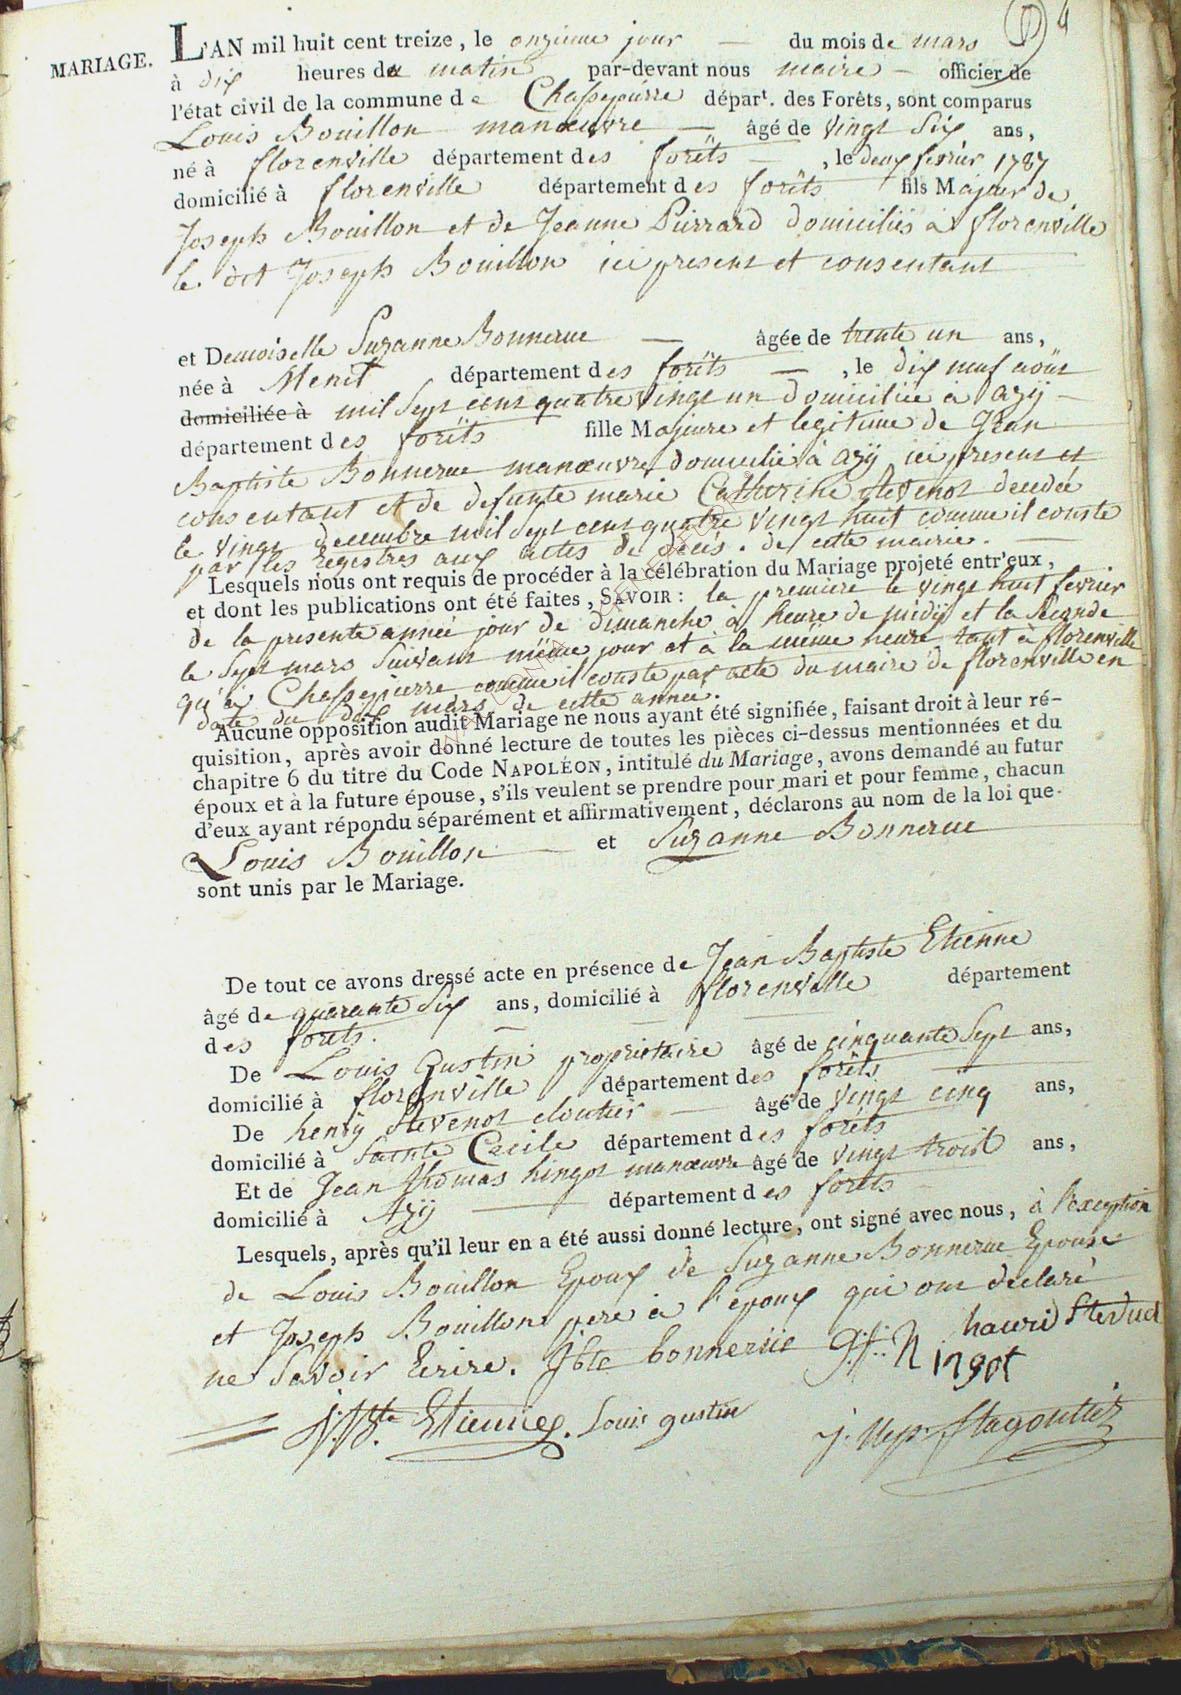 4
MARIAGE. L'AN mil huit cent treize, le onzieme jour — du mois de mars
à dix heures du matin par-devant nous maire — officier de
l'état civil de la commune de Chassepierre départ. des Forêts, sont comparus
Louis Bouillon manœuvre — âgé de vingt six ans,
né à florenville département des forêts — , le deux fevrier 1787
domicilié à florenville département des forêts fils Majeur de
Joseph Bouillon et de Jeanne Pierrard domiciliés à florenville
le dit Joseph Bouillon ici present et consentant
et Demoiselle Suzanne Bonnerue — âgée de trente un ans,
née à Menil département des forêts — , le dix neuf août
domiciliée à mil sept cent quatre vingt un domiciliée à azÿ —
département des forêts fille Majeure et legitime de Jean
Baptiste Bonnerue manœuvre domicilié à azÿ ici present et
consentant et de defunte marie Catherine Stevenot decedée
le vingt decembre mil sept cent quatre vingt huit comme il conste
par les Registres aux actes de décès de cette mairie. —
Lesquels nous ont requis de procéder à la célébration du Mariage projeté entr'eux,
et dont les publications ont été faites, SAVOIR : la premiere le vingt huit fevrier
de la presente année jour de dimanche à heure de midÿ et la seconde
le sept mars suivant même jour et à la même heure tant à florenville
qu'à Chassepierre comme il conste par acte du maire de florenville en
date du dix mars de cette année.
Aucune opposition audit Mariage ne nous ayant été signifiée, faisant droit à leur ré-
quisition, après avoir donné lecture de toutes les pièces ci-dessus mentionnées et du
chapitre 6 du titre du Code NAPOLÉON, intitulé du Mariage, avons demandé au futur
époux et à la future épouse, s'ils veulent se prendre pour mari et pour femme, chacun
d'eux ayant répondu séparément et affirmativement, déclarons au nom de la loi que
Louis Bouillon — et Suzanne Bonnerue
sont unis par le Mariage.
De tout ce avons dressé acte en présence de Jean Baptiste Etienne
âgé de quarante six ans, domicilié à florenville département
des forêts.
De Louis Gustin propriétaire âgé de cinquante sept ans,
domicilié à florenville département des forêts
De henrÿ Stevenot cloutier — âgé de vingt cinq ans,
domicilié à Sainte Cecile département des forêts
Et de Jean thomas hingot manœuvre âgé de vingt trois ans,
domicilié à Azÿ — département des forêts
Lesquels, après qu'il leur en a été aussi donné lecture, ont signé avec nous, à l'exception
de Louis Bouillon Epoux de Suzanne Bonnerue Epouse
et Joseph Bouillon pere à l'époux qui ont declaré
ne savoir Ecrire. Jbte bonnerüe
J. Bte Etienne. Louis gustin